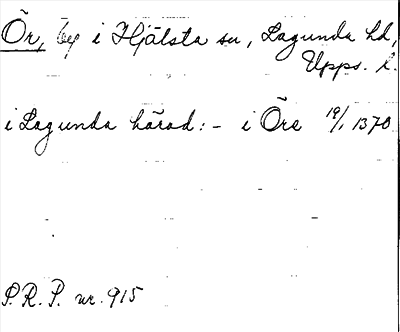 Ör, by i Hjälsta sn, Lagunda hd,
Upps. l.
i Lagunda härad: - i Öre 19/1 1370
P.R.P. nr. 915